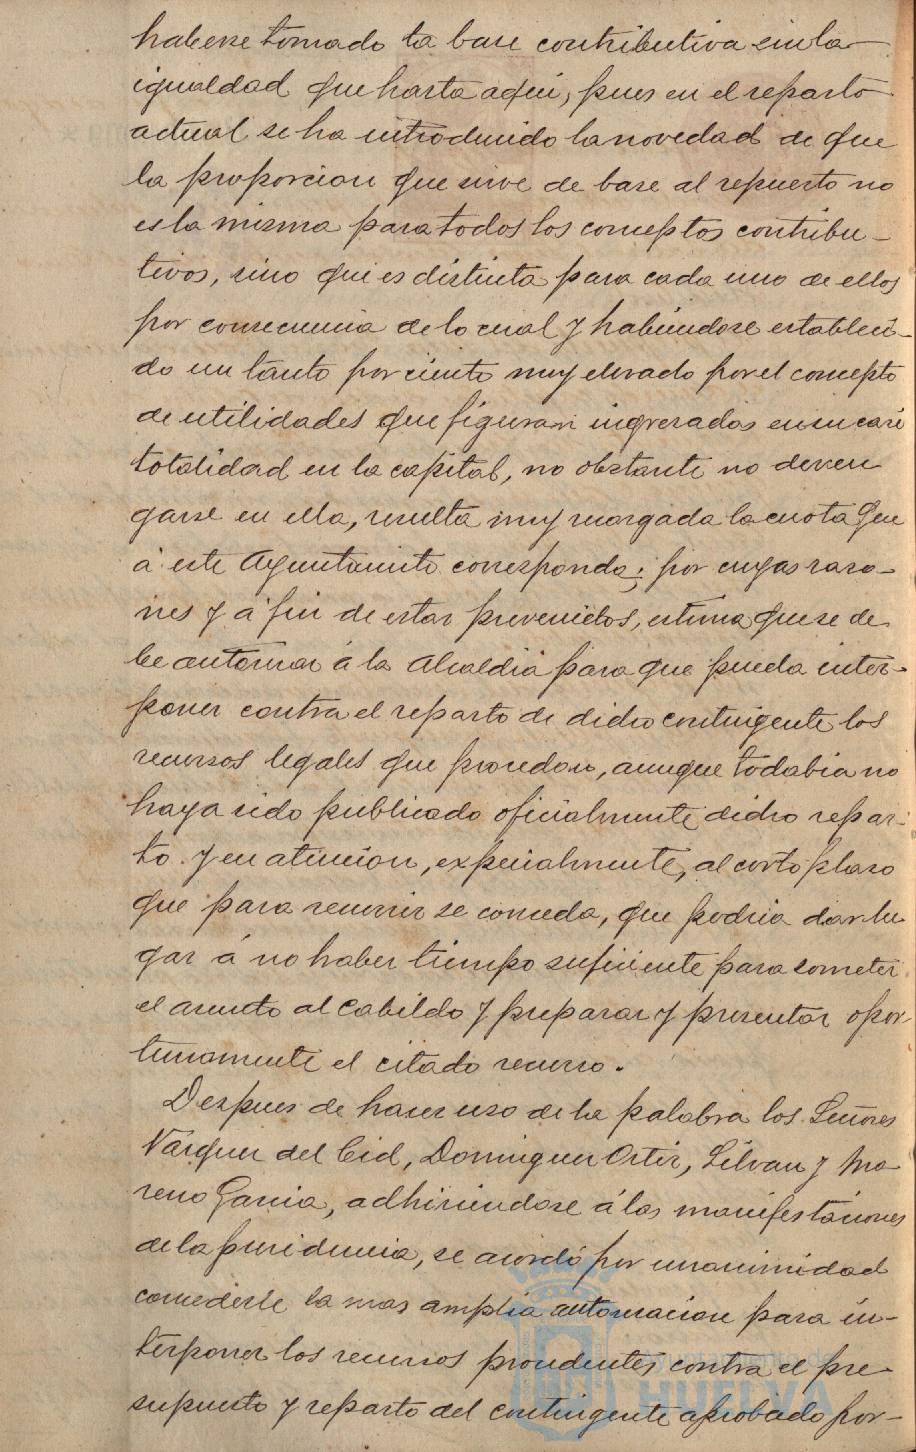 haberse tomado la base contributiva sin la
igualdad que hasta aqui, pues en el reparto
actual se ha introducido la novedad de que
la proporcion que sirve de base al repuesto no
es la misma para todos los conceptos contribu-
tivos, sino que es distinta para cada uno de ellos
por consecuencia de lo cual y habiendose estableci-
do un tanto por ciento muy elevado por el concepto
de utilidades que figuran ingresados en su casi
totalidad en la capital, no obstante no deven
garse en ella, resulta muy recargada la cuota que
á este Ayuntamiento corresponda; por cuyas razo-
nes y á fin de estar prevenidos, estima que se de
be autorizar á la Alcaldia para que pueda inter-
poner contra el reparto de dicho contingente los
recursos legales que procedan, aunque todabia no
haya sido publicado oficialmente dicho repar-
to y en atencion, expecialmente, al corto plazo
que para recurrir se conceda, que podria dar lu
gar á no haber tiempo suficiente para someter
el asunto al Cabildo y preparar y presentar opor-
tunamente el citado recurso.
Despues de hacer uso de la palabra los Señores
Vázquez del Cid, Dominguez Ortiz, Silvan y Mo-
reno Garcia, adhiriendose á las manifestaciones
de la presidencia, se acordó por unanimidad
concederle la mas amplia autorizacion para in-
terponer los recursos procedentes contra el pre-
supuesto y reparto del contingente aprobado por-
Ayuntamiento de
HUELVA